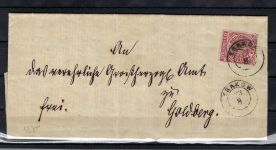 An
das verehrliche Großherzogl. Amt
zu
frei.
Goldberg.
KRAKOW